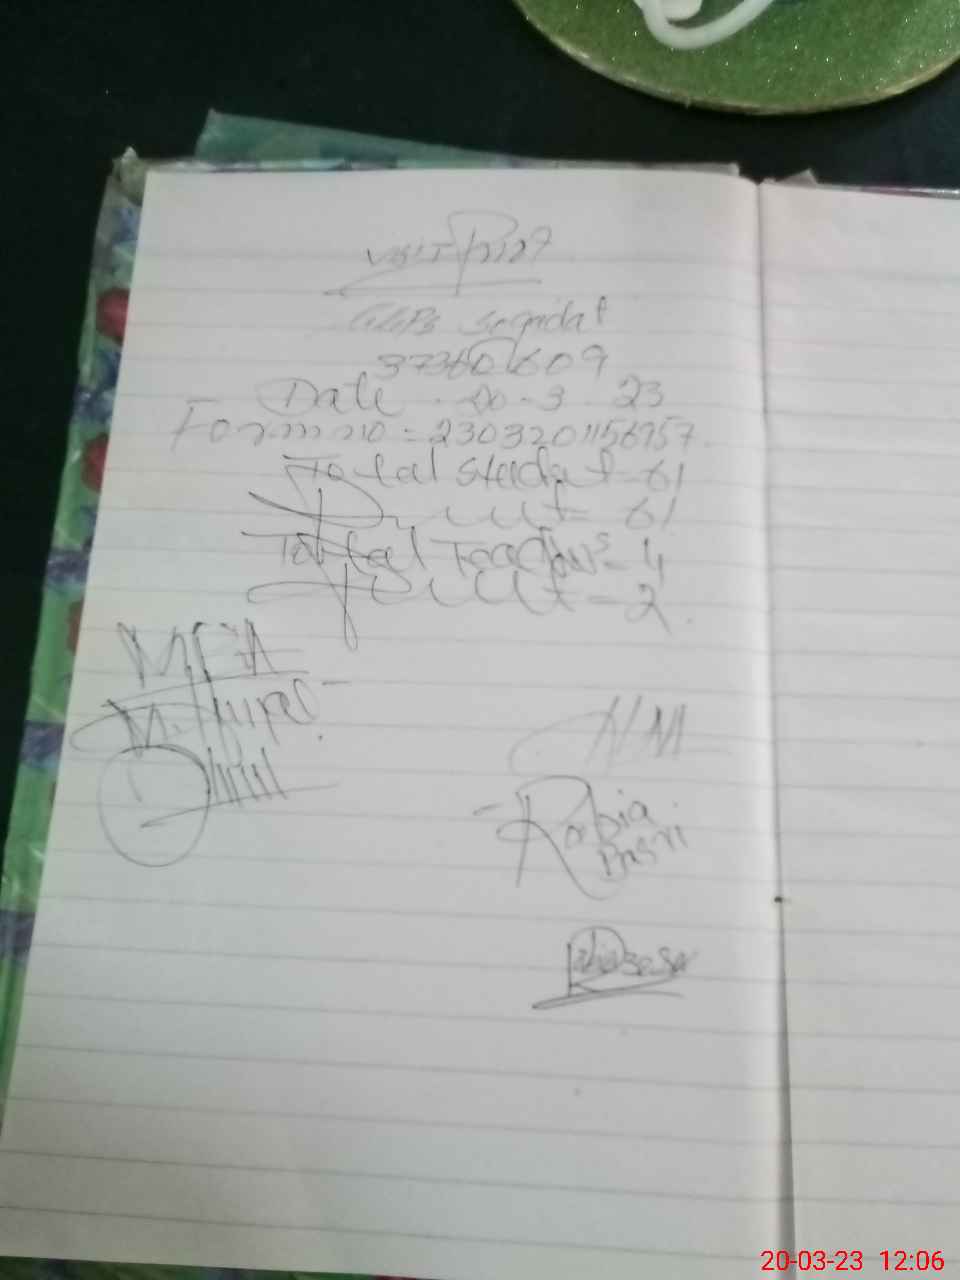 Visit
GGPS
37360609
Date . 20-3-23
Form no = 2303201156957
Total student - 61
Present = 61
Total Teachers = 4
Present - 2
MEA
M.
HM
Rabia
Basri
20-03-23 12:06